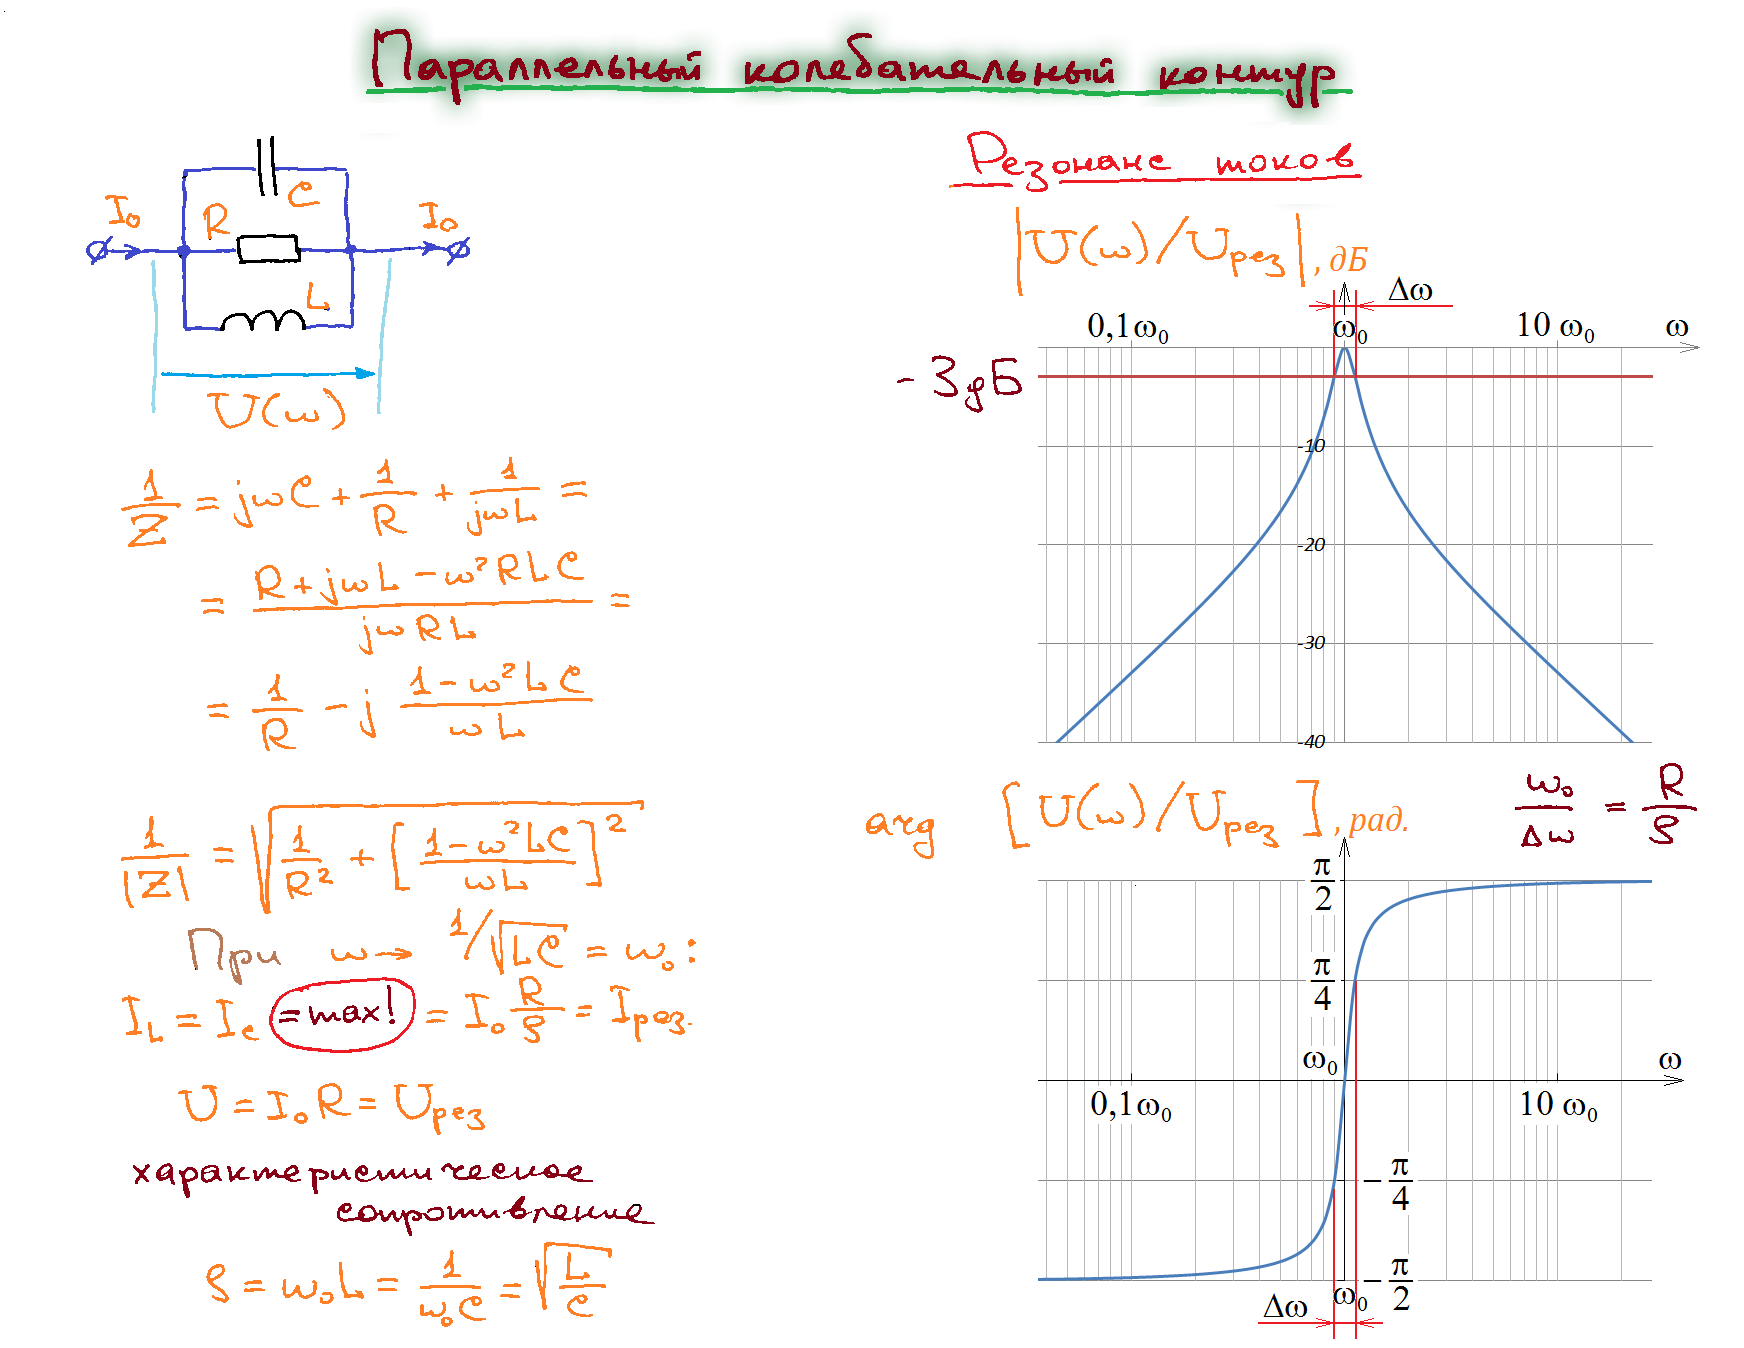 Параллельный колебательный контур
C
I₀ R I₀
L
U(ω)
1/Z = jωC + 1/R + 1/jωL =
= (R + jωL − ω²RLC)/(jωRL) =
= 1/R − j (1 − ω²LC)/(ωL)
1/|Z| = √(1/R² + [(1 − ω²LC)/(ωL)]²)
При ω → 1/√LC = ω₀:
I_L = I_C = max! = I₀ R/ρ = Iрез.
U = I₀R = Uрез
характеристическое
сопротивление
ρ = ω₀L = 1/(ω₀C) = √(L/C)
Резонанс токов
|U(ω)/Uрез|, дБ
Δω
0,1ω₀ ω₀ 10 ω₀ ω
-3дБ
-10
-20
-30
-40
arg [U(ω)/Uрез], рад.
ω₀/Δω = R/ρ
π/2
π/4
ω₀ ω
0,1ω₀ 10 ω₀
−π/4
−π/2
Δω ω₀